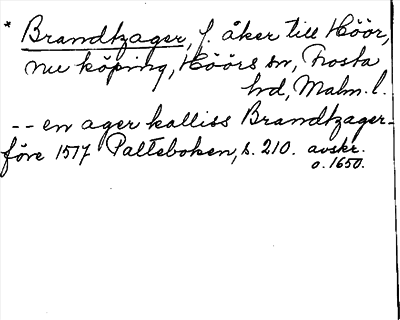 * Brandtzager, f. åker till Höör,
nu köping, Höörs sn, Frosta
hd, Malm. l.
-- en ager kalliss Brandtzager -
före 1517 Palteboken, s. 210. avskr.
o. 1650.